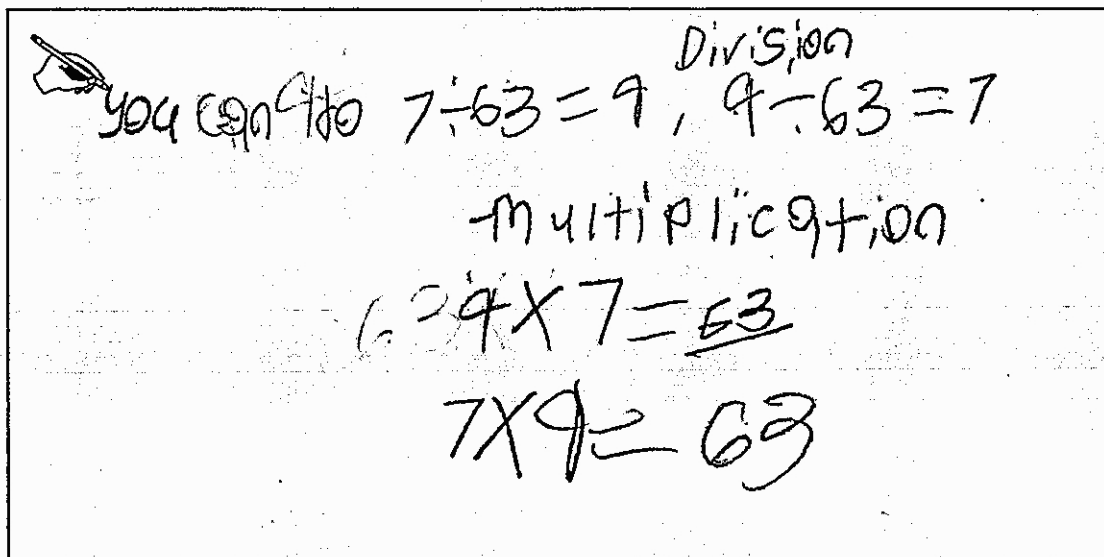 Division
you can do 7÷63=9, 9÷63=7
Multiplication
9×7=63
7×9=63